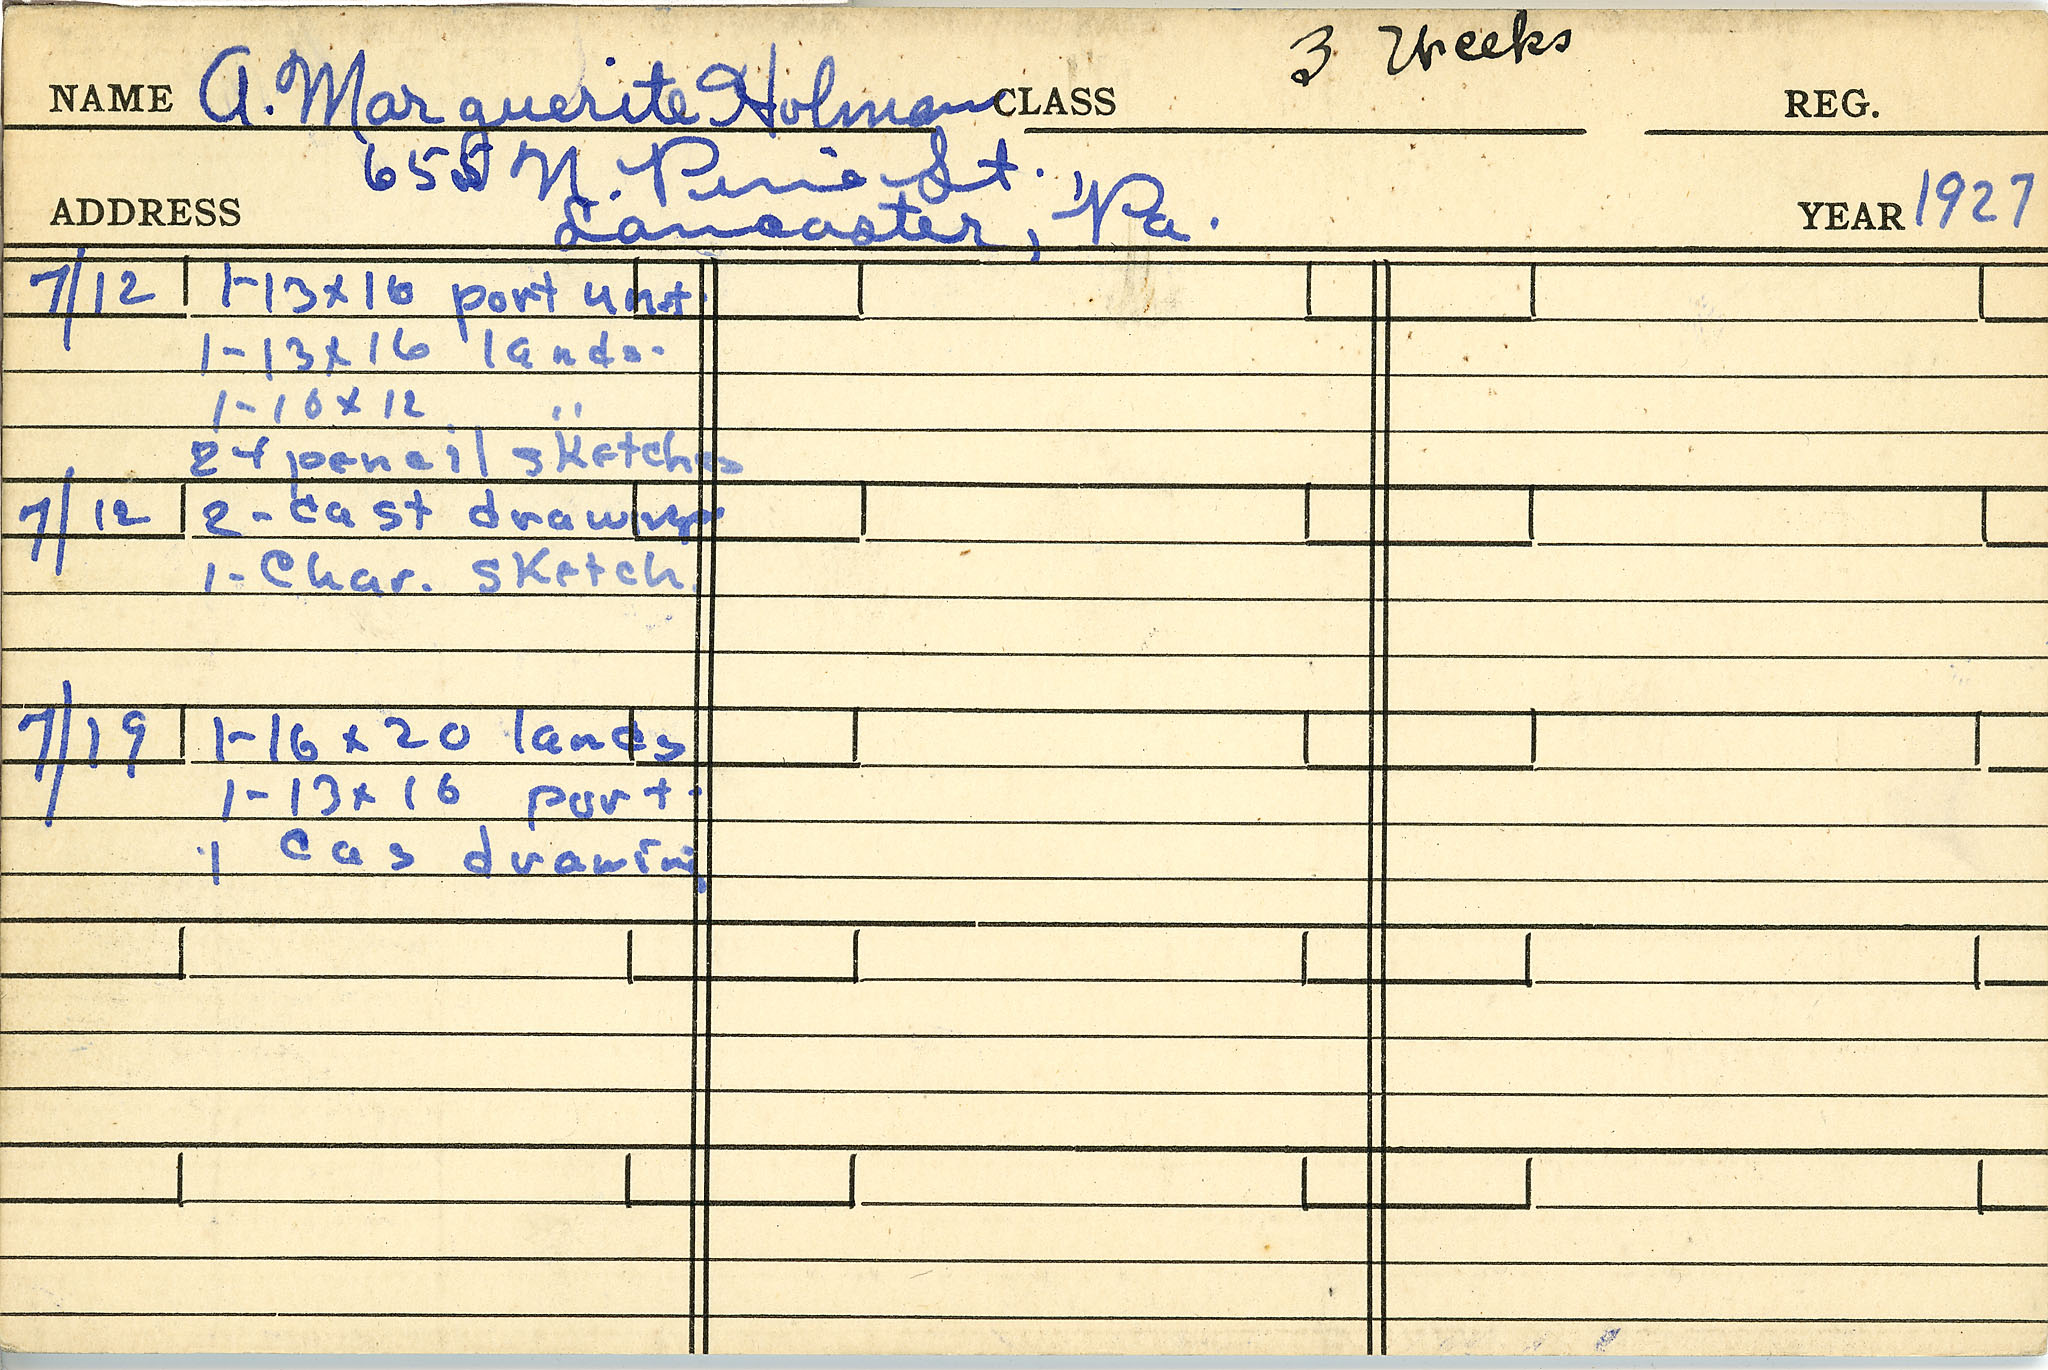 3 Weeks
NAME A. Marguerite Holman CLASS REG.
655 N. Pine St.
ADDRESS Lancaster, Pa. YEAR 1927
7/12 1-13x16 port unf.
1-13x16 lands.
1-10x12 "
24 pencil sketches
7/12 2-cast drawings
1-Char. sketch.
7/19 1-16x20 lands
1-13x16 port.
1 Cas drawing